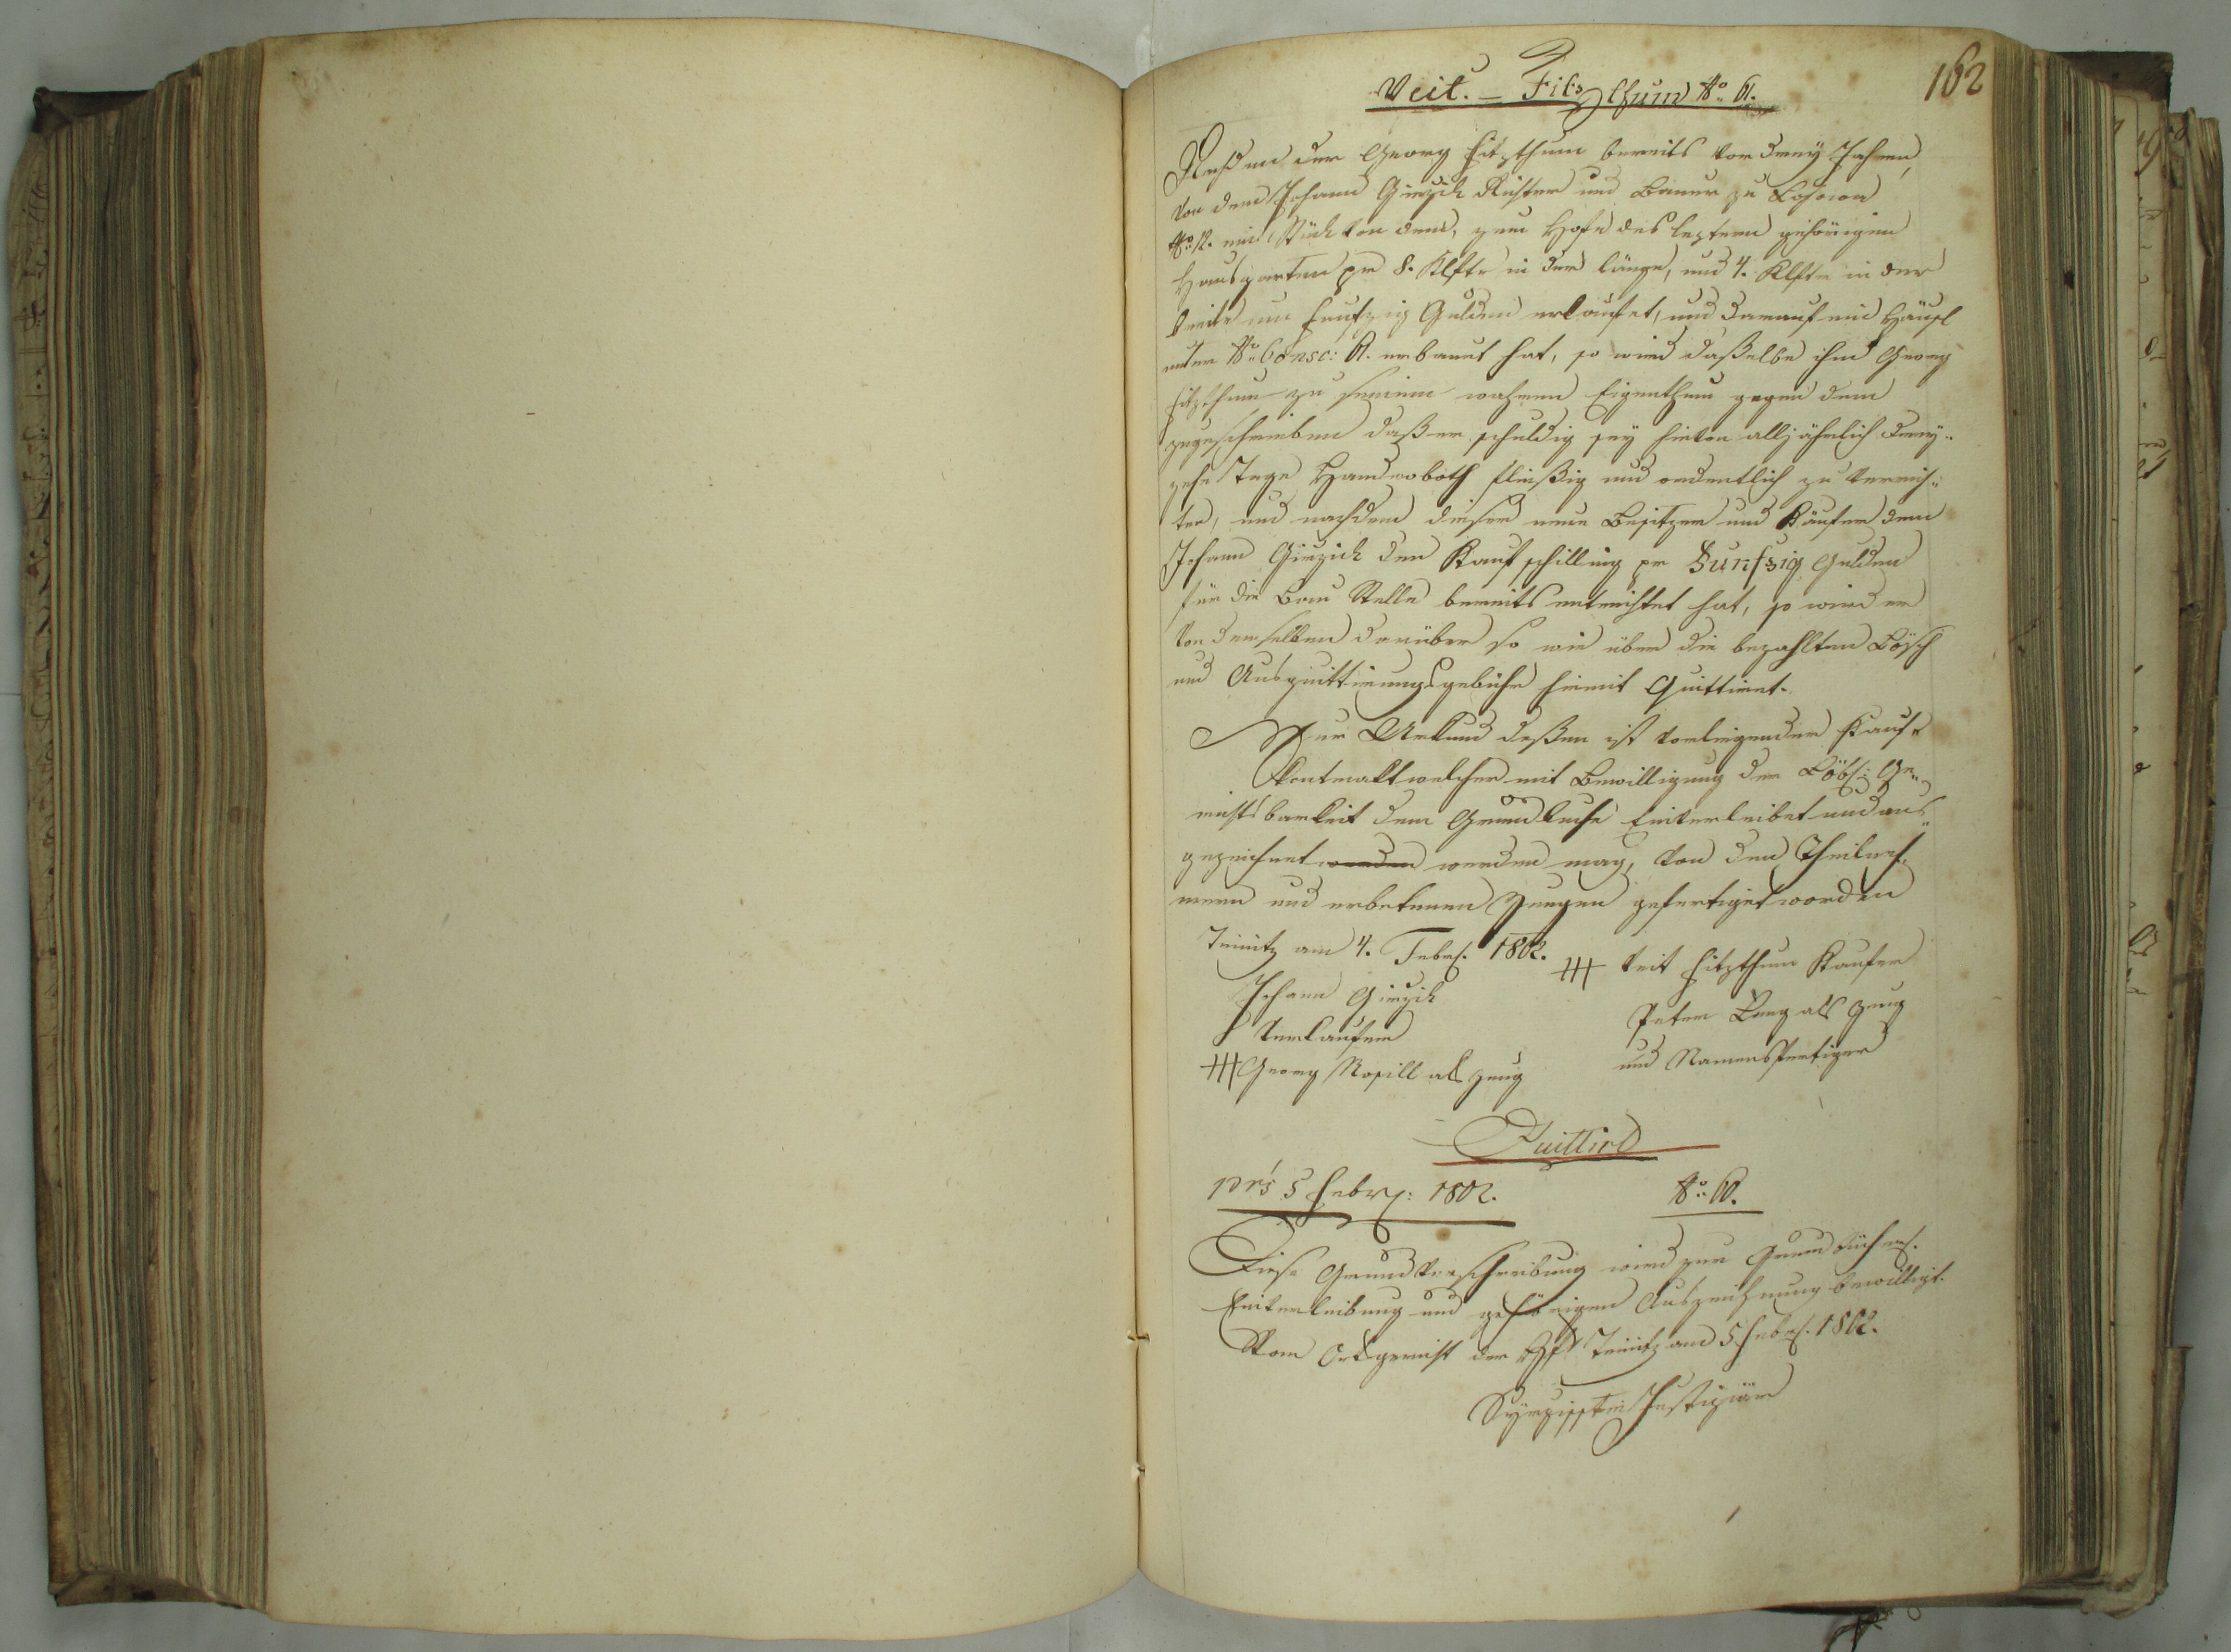 162
Veit. – Fitzthum No 61.
Nachdem der Georg Fitzthum bereits vor drey Jahren,
von dem Johann Girzick Richter und Bauer zu Losowa
No 12. ein Stück von dem, zum Hofe des leztern gehörigen
Hausgarten pr 8. Klftr in der länge, und 4. Klftr in der
breite um Funfzig Gulden erkaufet, und darauf ein Häusl
unter No Consc: 61. erbauet hat, so wird daßelbe ihm Georg
Fitzthum zu seinem wahren Eigenthum gegen dem
zugeschrieben daß er schuldig sey hievon alljährlich drey-
zehn Tage Handroboth fleißig und ordentlich zu verrich-
ten, und nachdem dieser neue Besitzer und Käufer dem
Johann Girzick den Kaufschilling pr Funfzig Gulden
für die Bau Stelle bereits entrichtet hat, so wird er
von demselben darüber so wie über die bezahlten Lösch
und Ausquittirungsgebühr hiemit Quittiret.
Zur Urkund deßen ist vorliegender Kauf-
kontrakt welcher mit Bewilligung der Löbl: Ge-
richtsbarkeit dem Grundbuche Einverleibet und aus-
gezeichnet werden werden mag, von den Theilneh-
mern und erbetenen Zeugen gefertiget worden
am 4. Febr. 1802.
+++ Veit Fitzthum Kaufer
Johann Girzick
Verkaufer
Peter Lang als Zeug
und Namensfertiger
+++ Georg Rosill als Zeug
prs 5 Febr: 1802.
No 60.
Diese Grundverschreibung wird zur Grundbüchl.
Einverleibung und gehörigen Auszeichnung bewilligt.
Vom Ortsgericht der Hft am 5 Febr. 1802.
Justiziär